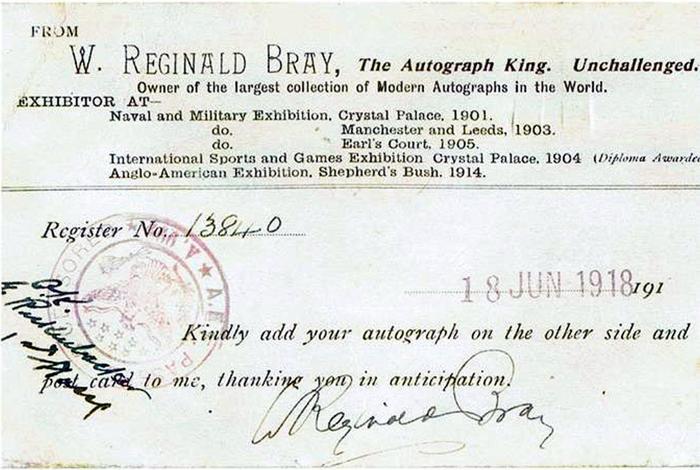 FROM
W. REGINALD BRAY, The Autograph King. Unchallenged.
Owner of the largest collection of Modern Autographs in the World.
EXHIBITOR AT—
Naval and Military Exhibition, Crystal Palace, 1901.
do. Manchester and Leeds, 1903.
do. Earl's Court, 1905.
International Sports and Games Exhibition Crystal Palace, 1904 (Diploma Awarded
Anglo-American Exhibition, Shepherd's Bush, 1914.
Register No. 13840
18 JUN 1918 191
Kindly add your autograph on the other side and
post card to me, thanking you in anticipation.
W Reginald Bray